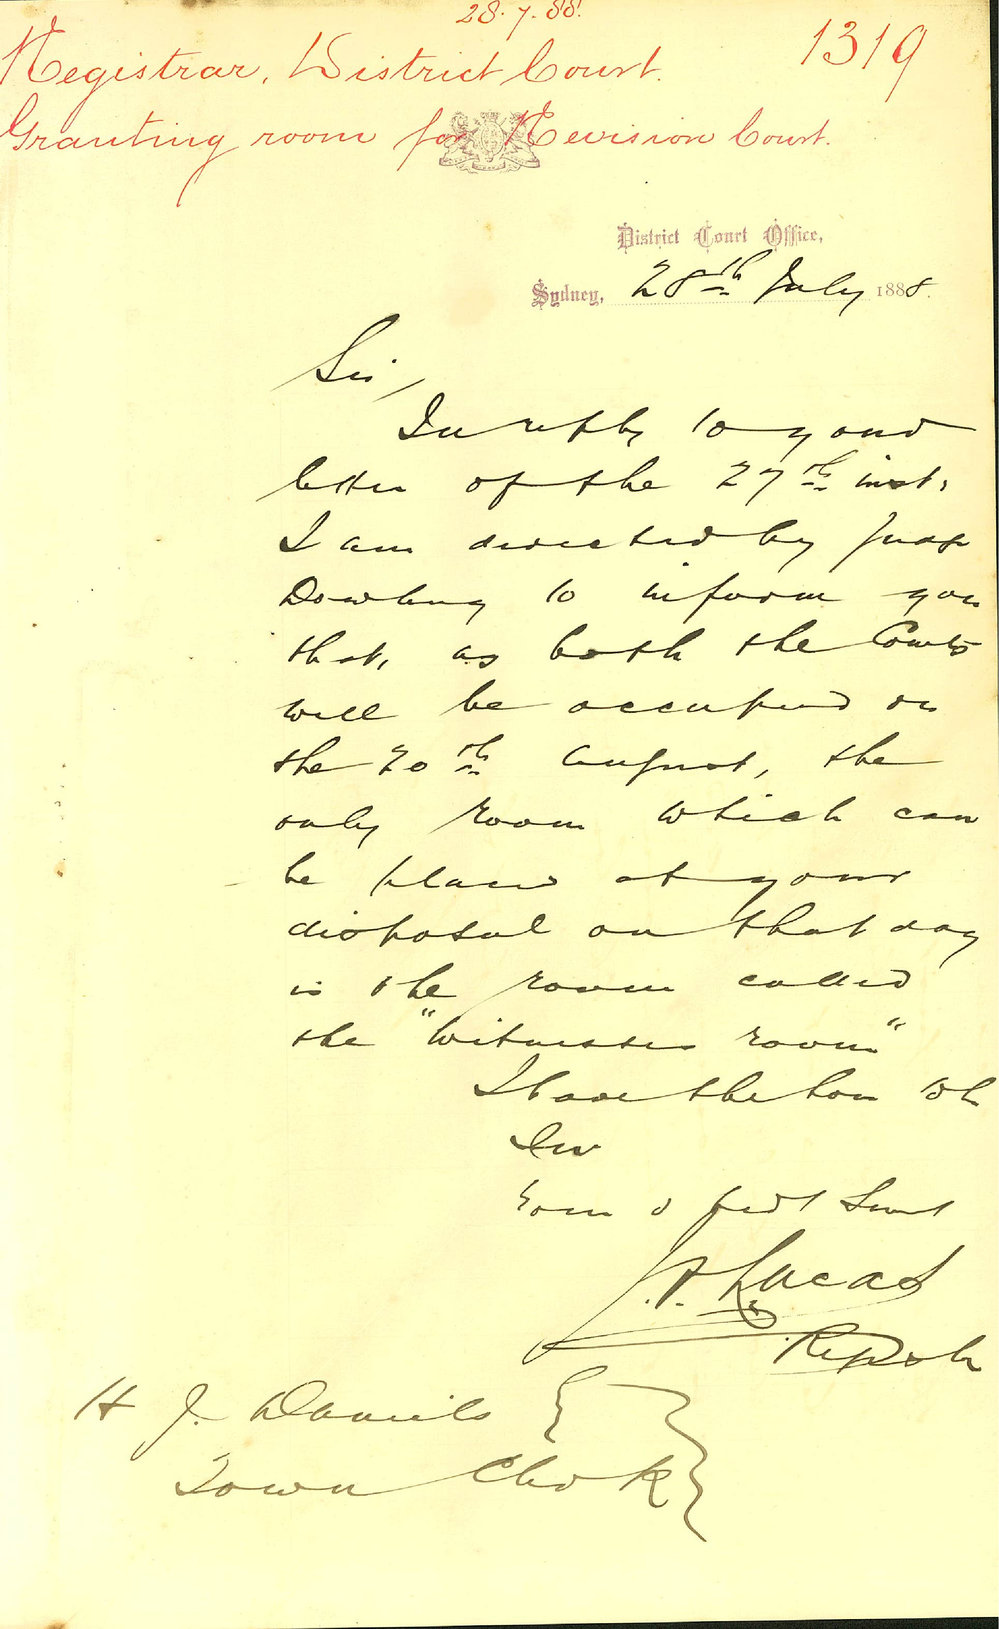 28.7.88.
1319
Registrar, District Court.
Granting room for Revision Court.
District Court Office,
Sydney, 28th July 1888.
Sir,
In reply to your
letter of the 27th inst.
I am directed by Judge
Dowling to inform you
that, as both the Courts
will be occupied on
the 20th August, the
only room which can
be placed at your
disposal on that day
is the room called
the "Witnesses room"
I have the hon to be
Sir
Your o bedt Servt
Lucas
Registr
H J. Daniels
Town Clerk